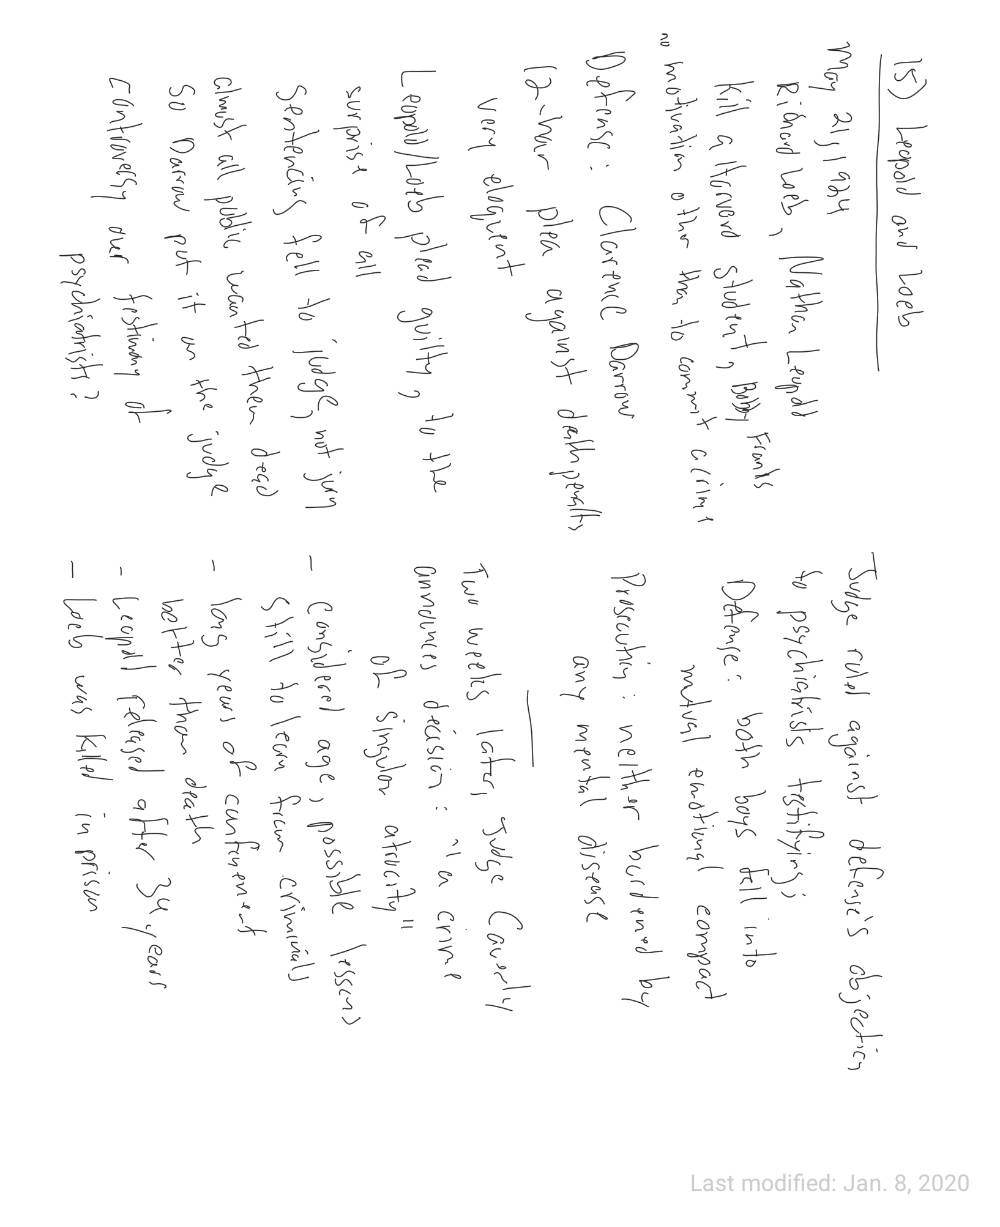 15) Leopold and Loeb
May 21, 1924
Richard Loeb, Nathan Leopold
kill a Harvard student, Bobby Franks
no motivation other than to commit a crime
Defense: Clarence Darrow
12-hour plea against death penalty
very eloquent
Leopold/Loeb plead guilty, to the
surprise of all
Sentencing fell to judge, not jury
almost all public wanted them dead
So Darrow put it on the judge
controversy over testimony of
psychiatrists?
Judge ruled against defense's objection
to psychiatrists testifying;
Defense: both boys fell into
mutual emotional compact
Prosecution: neither burdened by
any mental disease
Two weeks later, Judge Caverly
announces decision: "a crime
of singular atrocity"
- considered age, possible lessons
still to learn from criminals
- long years of confinement
better than death
- Leopold released after 34 years
- Loeb was killed in prison
Last modified: Jan. 8, 2020